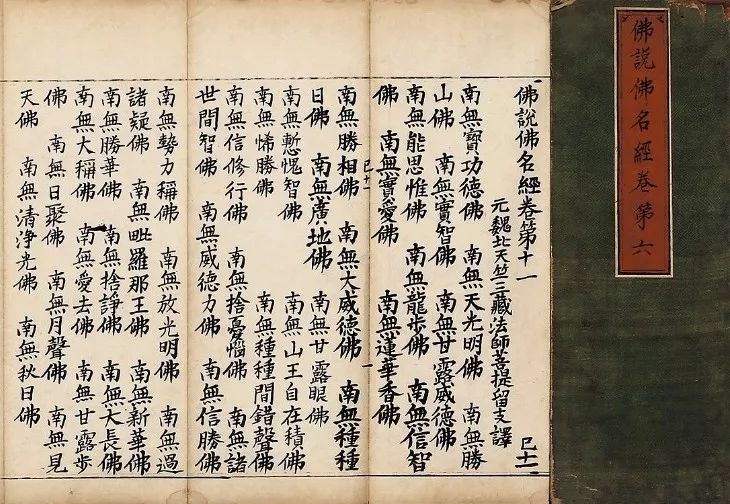 佛說佛名經卷第六
佛說佛名經卷第十一 巳十一
元魏北天竺三藏法師菩提留支譯
南無寶功德佛 南無天光明佛 南無勝
山佛 南無實智佛 南無甘露威德佛
南無能思惟佛 南無龍步佛 南無信智
佛 南無實愛佛 南無蓮華香佛
巳十一 一
南無勝相佛 南無大威德佛 南無種種
日佛 南無廣地佛 南無甘露眼佛
南無慙愧智佛 南無山王自在積佛
南無悕勝佛 南無種種間錯聲佛
南無信修行佛 南無捨憂惱佛 南無諸
世間智佛 南無威德力佛 南無信勝佛
南無勢力稱佛 南無放光明佛 南無過
諸疑佛 南無毗羅那王佛 南無新華佛
南無勝華佛 南無捨諍佛 南無大長佛
南無大稱佛 南無愛去佛 南無甘露步
佛 南無日聚佛 南無月聲佛 南無見
天佛 南無清淨光佛 南無秋日佛